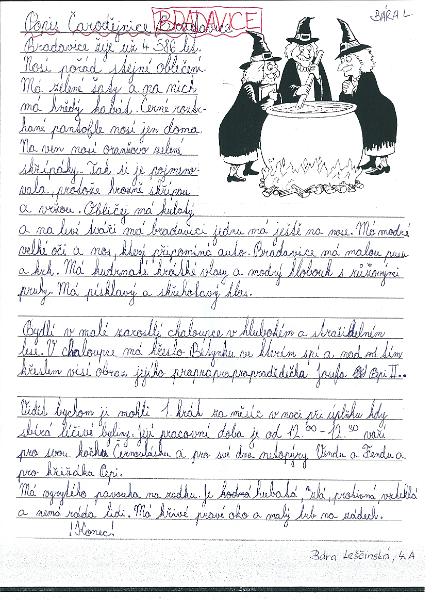 BÁRA L.
Popis Čarodějnice Bradavice
BRADAVICE
Bradavice žije už 4 586 let.
Nosí pořád stejné oblečení.
Má zelené šaty a na nich
má hnědý kabát. Černé roztr-
hané pantofle nosí jen doma.
Na ven nosí oranžovo zelené
skřípáky. Tak si je pojmeno-
vala, protože hrozně skřípou
a vržou. Obličej má kulatý
a na levé tváři má bradavici jednu má ještě na nose. Má modré
velké oči a nos, který připomíná auto. Bradavice má malou pusu
a krk. Má kudrnaté krátké vlasy a modrý klobouk s růžovými
pruhy. Má pisklavý a skřehotavý hlas.
Bydlí v malé zarostlé chaloupce v hlubokém a strašidelném
lese. V chaloupce má křeslo ve kterém spí a nad ním
křeslem visí obraz jejího prapraprapradědečka Josefa Cipi II..
Vidět bychom ji mohli 1 krát za měsíc v noci při úplňku kdy
sbírá léčivé byliny. Její pracovní doba je od 12.00 - 12.40 vaří
pro svou kočku Černoušku a pro své dva netopýry Vendu a Ferdu a
pro křižáka Cipi.
Má ošklivého pavouka na zádku. Je hubatá, zlá, protivná vzteklá
a nemá ráda lidi. Má křivé pravé oko a malý hrb na zádech.
!Konec!
Bára Leščinská, 4.A